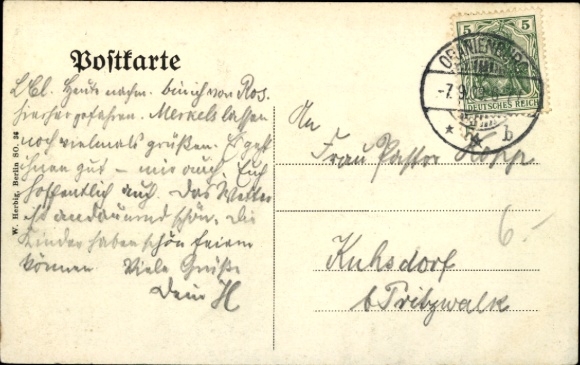 Postkarte
L. Cl. Heute nachm. bin ich von Ros.
hierher gefahren. Merkels lassen
noch vielmals grüßen. Es geht
ihnen gut – mir auch, Euch
hoffentlich auch. Das Wetter
ist andauernd schön. Die
Kinder haben schön feiern
können. Viele Grüße
Dein H
W. Herbig, Berlin SO. 36
5 5
DEUTSCHES REICH
ORANIENBURG
-7.9.09.
* b
An
Frau Pastor Hopp
Kuhsdorf
b Pritzwalk
6.-